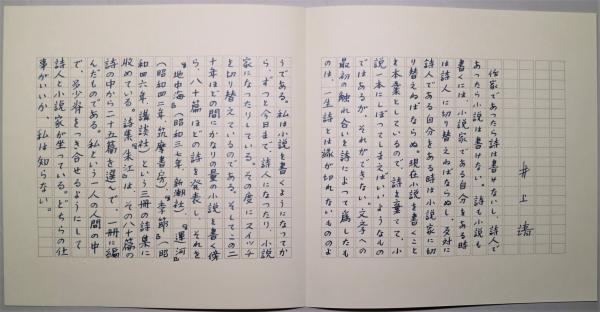 井上靖
作家であったら詩は書けないし、詩人で
あったら小説は書けない。詩も小説も
書くには、小説家である自分をある時
は詩人に切り替えねばならぬし、反対に
詩人である自分をある時は小説家に切
り替えねばならぬ。現在小説を書くこと
を本業としているので、詩を棄てて、小
説一本にしぼってしまえばいいようなもの
ではあるが、それができない。文学への
最初の触れ合いを詩によって為したも
のは、一生詩とは縁が切れないもののよ
うである。私は小説を書くようになってか
ら、ずっと今日まで、詩人になったり、小説
家になったりしている。その度にスイッチ
を切り替えているのである。そしてこの二
十年ほどの間にかなりの量の小説を書く傍
ら、八十篇ほどの詩を発表し、それを
『地中海』(昭和三七年、新潮社)『運河』
(昭和四二年、筑摩書房)『季節』(昭
和四六年、講談社)という三冊の詩集に
収めている。詩集『朱江』は、その八十篇の
詩の中から二十五篇を選んで、一冊に編
んだものである。私という一人の人間の中
で、多少脊をつき合せるようにして
詩人と小説家が坐っている。どちらの仕
事がいいか、私は知らない。